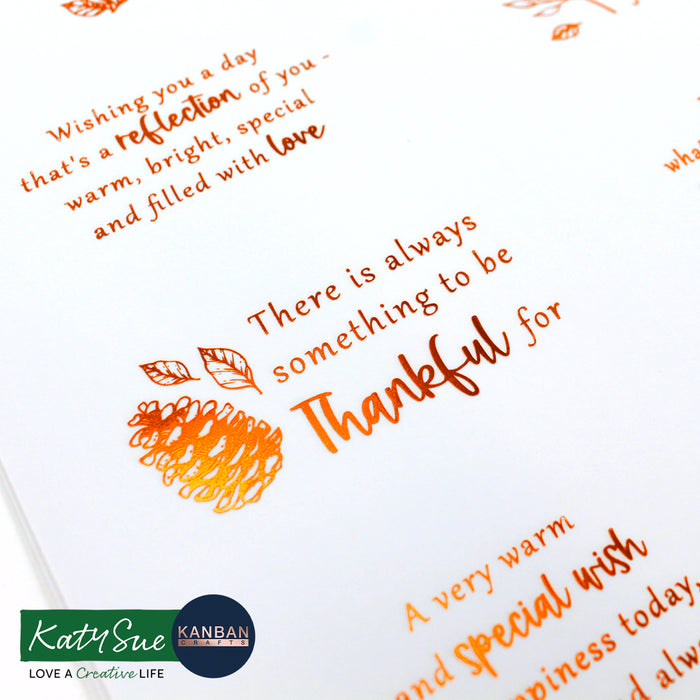 Wishing you a day
that's a reflection of you -
warm, bright, special
and filled with love
what
There is always
something to be
Thankful for
A very warm
and special wish
happiness today,
always
Katy Sue
LOVE A Creative LIFE
KANBAN
CRAFTS